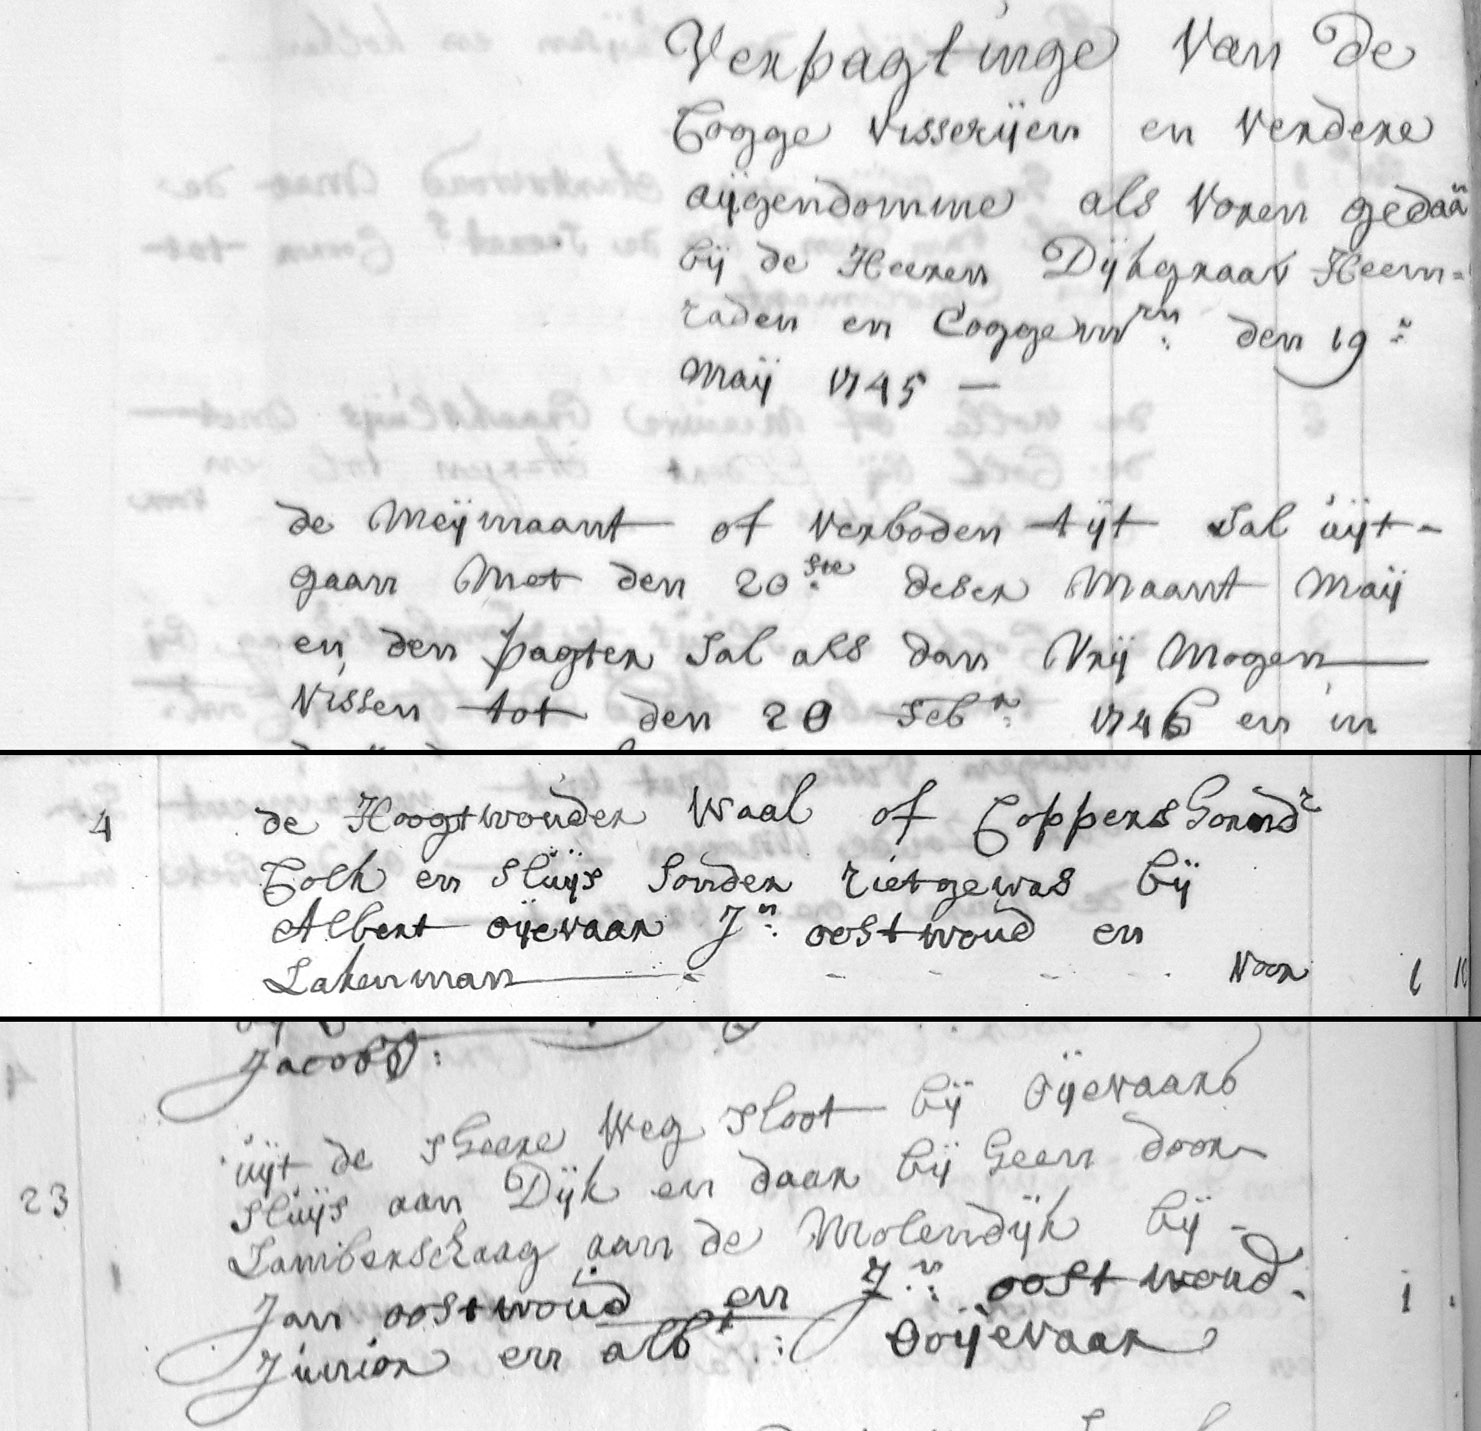 Verpagtinge Van de
Cogge Visserijen en Verdere
aijgendomme als Voren gedaã
bij de Heeren Dijkgraav Heem=
raden en Coggemrn: den 19n:
Maij 1745 —
de Meijmaant of Verboden tijt Sal uijt-
gaan Met den 20ste deser Maant Maij
en den pagter Sal als dan Vrij Mogen
Vissen tot den 20 Febr: 1746 en in
4 de Hoogtwouder Waal of Coppers
Colk en Sluijs Sonder rietgewas bij
Albert oijevaar Jn: oostwoud en
Lakenman - - - - Voor 1 10
Jacobs:
uijt de Heere Weg Sloot bij Oijevaars
23 Sluijs aan Dijk en daar bij Geen door
Lamberschaag aan de Molendijk bij-
Jan oostwoud en Jn: oostwoud. 1
Junior en albt: Ooijevaar